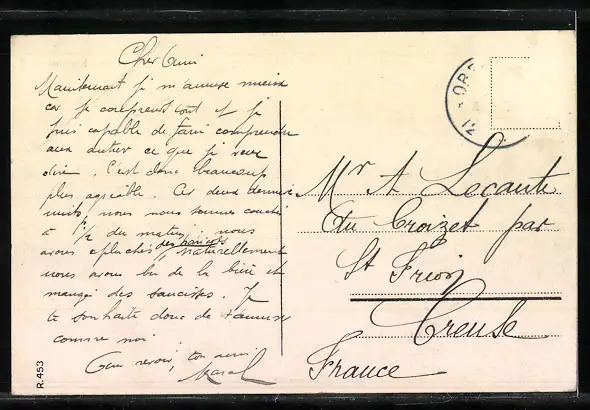 Cher Ami
Maintenant je m'amuse mieux
car je comprend tout et je
suis capable de faire comprendre
aux autres ce que je veux
dire. C'est donc beaucoup
plus agréable. Ces deux dernières
nuits, nous nous sommes couchés
à du matin, nous
avons épluchés des haricots, naturellement
nous avons bu de la bière et
mangé des saucisses. Je
te souhaite donc de t'amuser
comme moi.
revoir, ton ami
Marcel
Mr A Lecante
du Croizet par
St Frion
Creuse
France
R. 453